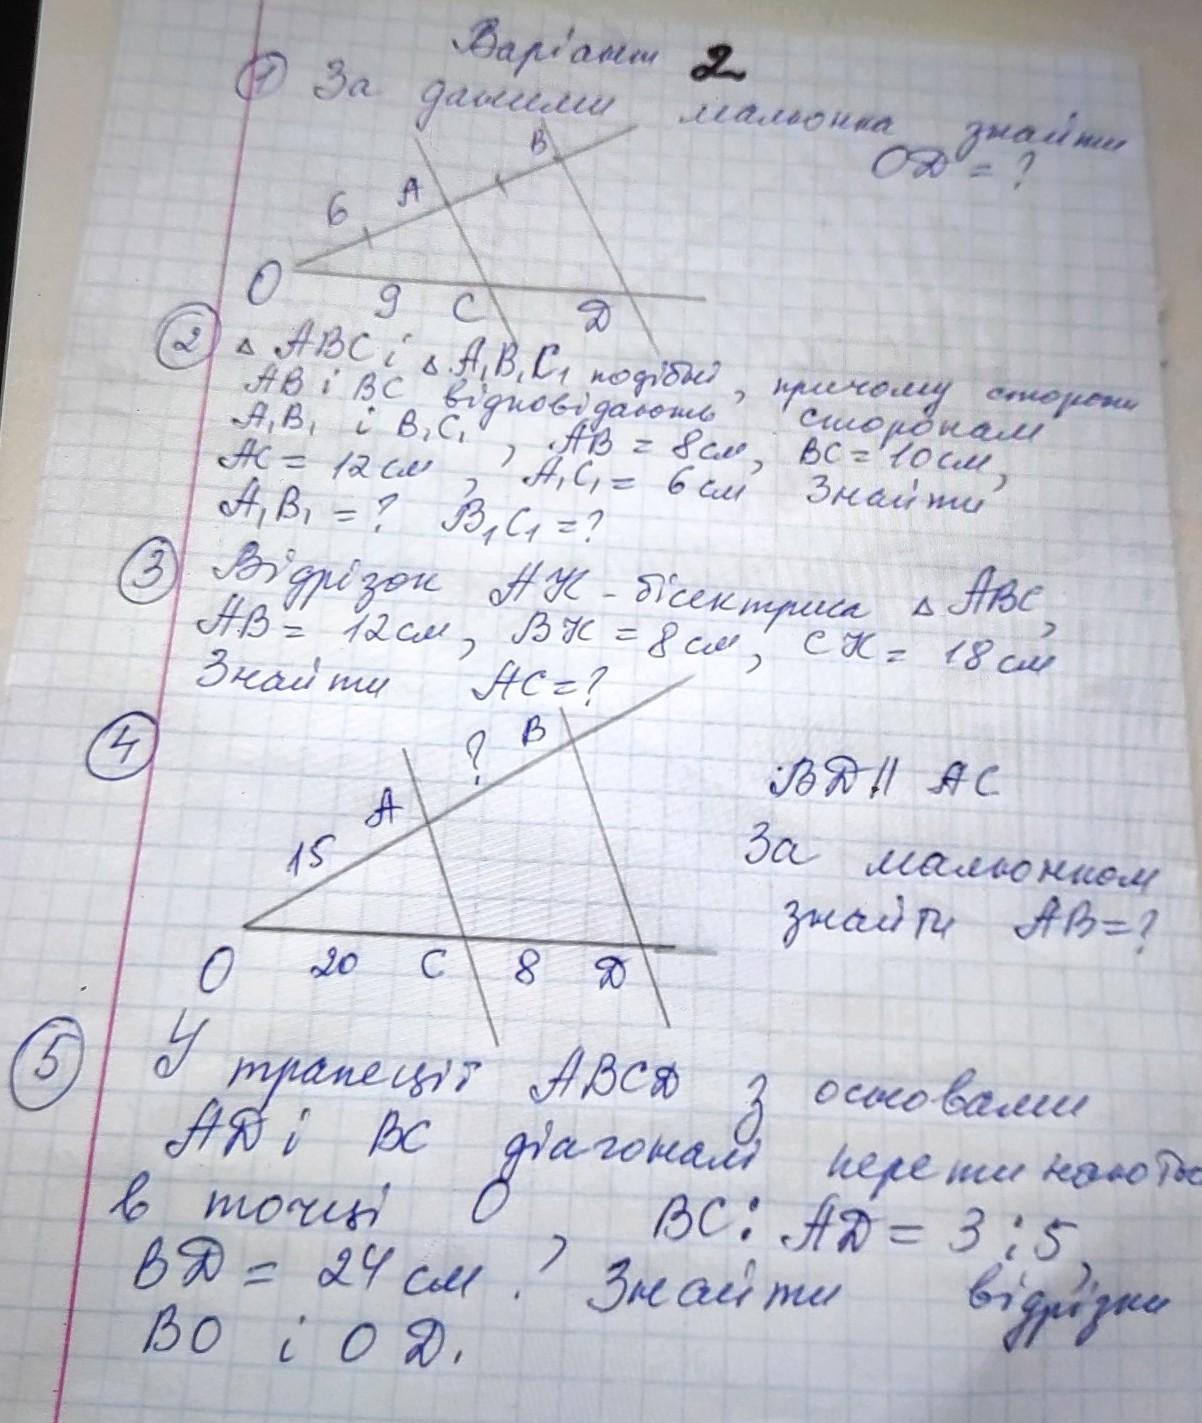 Варіант 2
① За даними мальонка знайти
OD = ?
B
A
6
O
9
C
D
② △ ABC і △ A₁B₁C₁ подібні, причому сторони
AB і BC відповідають сторонам
A₁B₁ і B₁C₁, AB = 8 см, BC = 10 см,
AC = 12 см, A₁C₁ = 6 см Знайти
A₁B₁ = ? B₁C₁ = ?
③ Відрізок AK - бісектриса △ ABC,
AB = 12 см, BK = 8 см, CK = 18 см
Знайти AC = ?
④
B
?
A
15
O
20
C
8
D
BD || AC
За мальонком
знайти AB = ?
⑤ У трапеції ABCD з основами
AD і BC діагоналі перетинають
в точці O, BC : AD = 3 : 5,
BD = 24 см. Знайти відрізки
BO і OD.